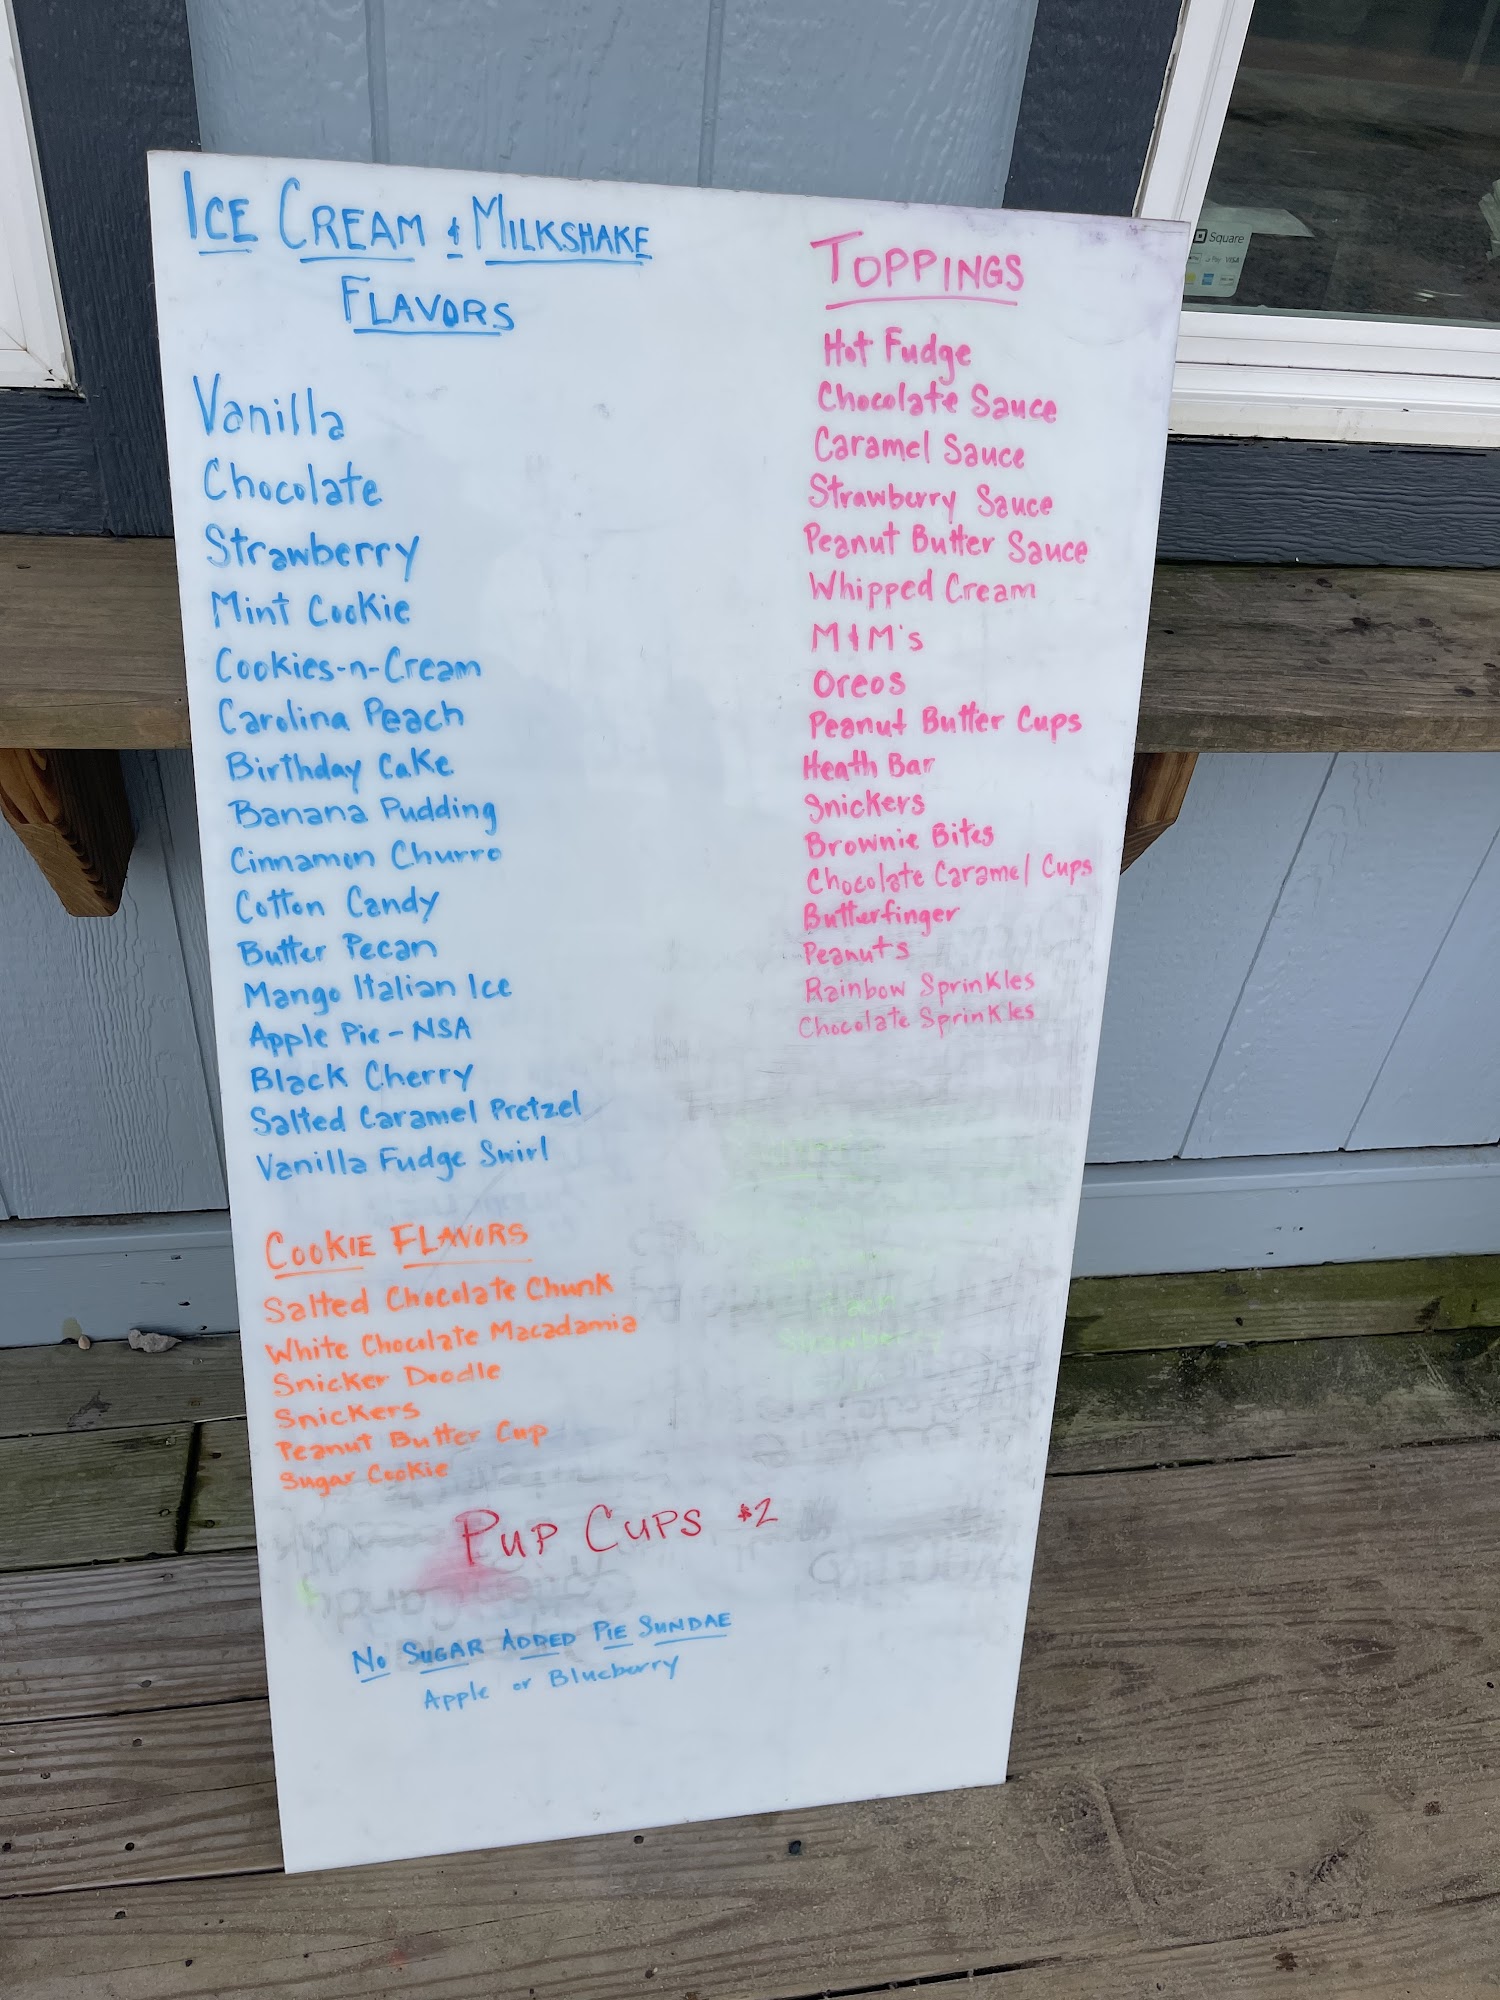 ICE CREAM & MILKSHAKE
FLAVORS
Vanilla
Chocolate
Strawberry
Mint Cookie
Cookies-n-Cream
Carolina Peach
Birthday Cake
Banana Pudding
Cinnamon Churro
Cotton Candy
Butter Pecan
Mango Italian Ice
Apple Pie - NSA
Black Cherry
Salted Caramel Pretzel
Vanilla Fudge Swirl
COOKIE FLAVORS
Salted Chocolate Chunk
White Chocolate Macadamia
Snicker Doodle
Snickers
Peanut Butter Cup
Sugar Cookie
TOPPINGS
Hot Fudge
Chocolate Sauce
Caramel Sauce
Strawberry Sauce
Peanut Butter Sauce
Whipped Cream
M&M's
Oreos
Peanut Butter Cups
Heath Bar
Snickers
Brownie Bites
Chocolate Caramel Cups
Butterfinger
Peanuts
Rainbow Sprinkles
Chocolate Sprinkles
PUP CUPS $2
NO SUGAR ADDED PIE SUNDAE
Apple or Blueberry
Square
Pay VISA